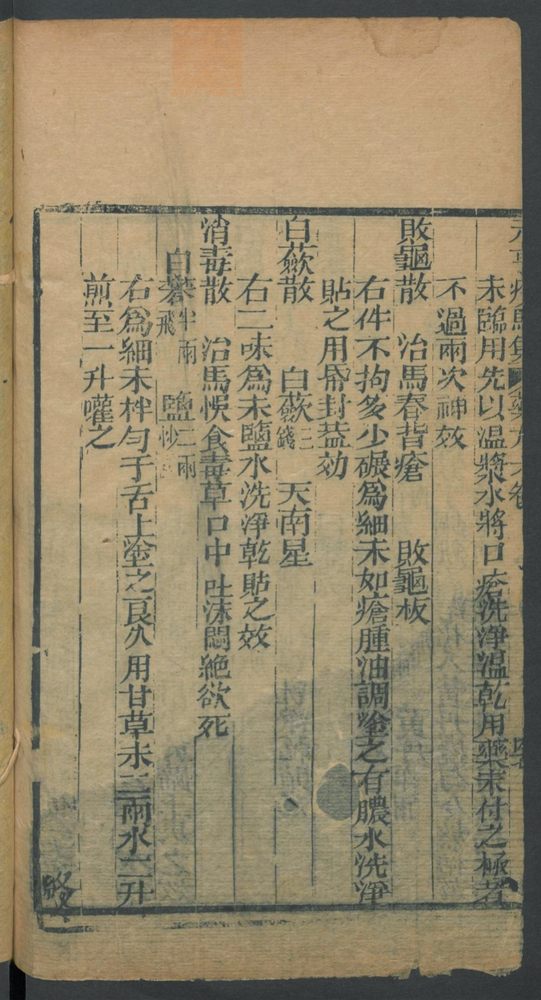 元亨療馬集 藥方六卷
末臨用先以温漿水將口瘡洗淨温乾用藥末付之極者
不過兩次神效
敗龜散 治馬春背瘡 敗龜板
右件不拘多少碾爲細末如瘡腫油調塗之有膿水洗淨
貼之用帋封葢効
白蘞散 白蘞三錢 天南星
右二味爲末鹽水洗淨乾貼之效
消毒散 治馬悞食毒草口中吐沫悶絶欲死
白礬半兩飛 鹽二兩炒
右爲細末拌匀于舌上塗之良久用甘草末三兩水二升
煎至一升嚾之